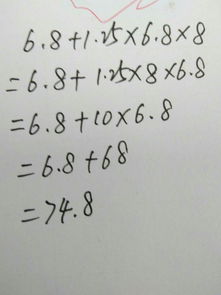 6.8+1.25×6.8×8
=6.8+1.25×8×6.8
=6.8+10×6.8
=6.8+68
=74.8